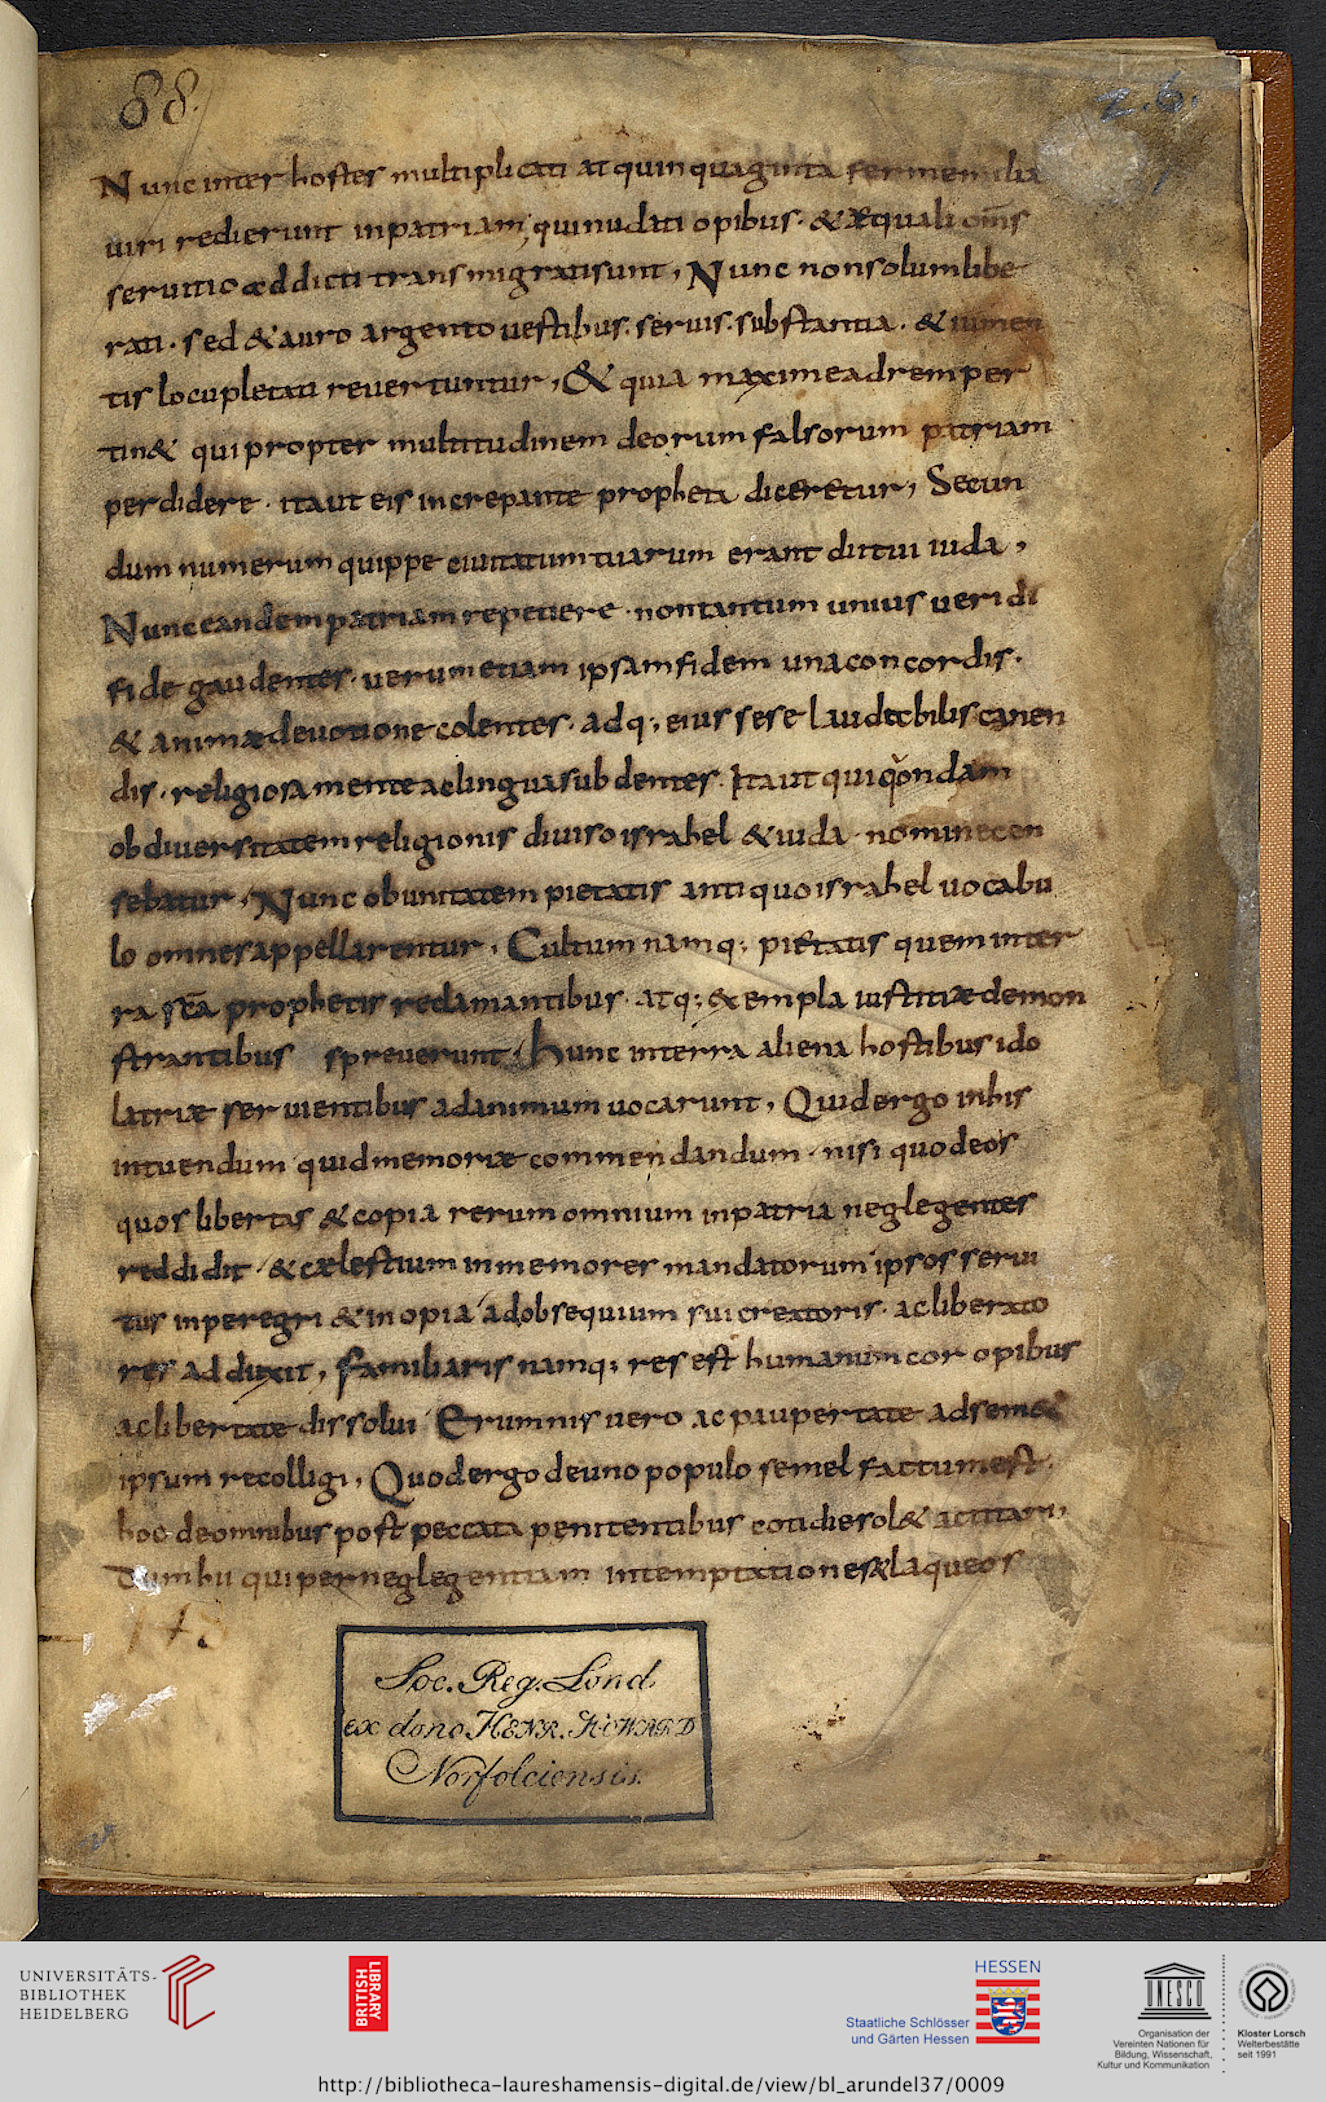 88.
2.6.
Nunc inter hostes multiplicati at quinquaginta ferme milia
uiri redierunt inpatriam, quinudati opibus. & æquali om̅s
seruitio addicti transmigratisunt, Nunc nonsolumlibe
rati. sed & auro argento uestibus. seruis. substantia. & iumen
tis locupletati reuertuntur, & quia maximeadremper
tin& qui propter multitudinem deorum falsorum patriam
perdidere. itaut eis increpante propheta diceretur, Secun
dum numerum quippe ciuitatumtuarum erant diitui iuda,
Nunceandempatriamrepetiere. nontantum unius ueri di
fide gaudentes. uerumetiam ipsamfidem unaconcordis.
& animædeuotione colentes. adq; eius sese laudubilis canen
dis. religiosamenteaclinguasubdentes. Itaut qui quondam
obdiuersitatemreligionis diuiso israhel & iuda. nominecen
sebatur, Nunc obunitatem pietatis antiquoisrahel uocabu
lo omnesappellarentur, Cultum namq; pietatis queminter
ra sc̅a prophetis reclamantibus. atq; exempla iustitiædemon
strantibus spreuerunt, Hunc interra aliena hostibus ido
latriæ seruientibus adanimum uocarunt, Quidergo inhis
intuendum quidmemoriæ commendandum. nisi quodeos
quos libertas & copia rerumomnium inpatria neglegentes
reddidit, & cælestium inmemores mandatorum ipsos serui
tus inperegri & inopia adobsequium suicreatoris. acliberato
res adduxit, Familiaris namq; res est humanumcor opibus
aclibertate dissolui Erumnis uero ac paupertate adsem&
ipsum recolligi, Quodergodeunopopulo semel factumest.
hoc deomnibus post peccata penitentibus cotidiesol& actitari,
Dumhii quiperneglegentiam intemptationes&laqueos
Soc. Reg. Lond
ex dono HENR. HOWARD
Norfolciensis.
UNIVERSITÄTS-
BIBLIOTHEK
HEIDELBERG
BRITISH
LIBRARY
HESSEN
Staatliche Schlösser
und Gärten Hessen
UNESCO
Organisation der
Vereinten Nationen für
Bildung, Wissenschaft,
Kultur und Kommunikation
Kloster Lorsch
Welterbestätte
seit 1991
http://bibliotheca-laureshamensis-digital.de/view/bl_arundel37/0009